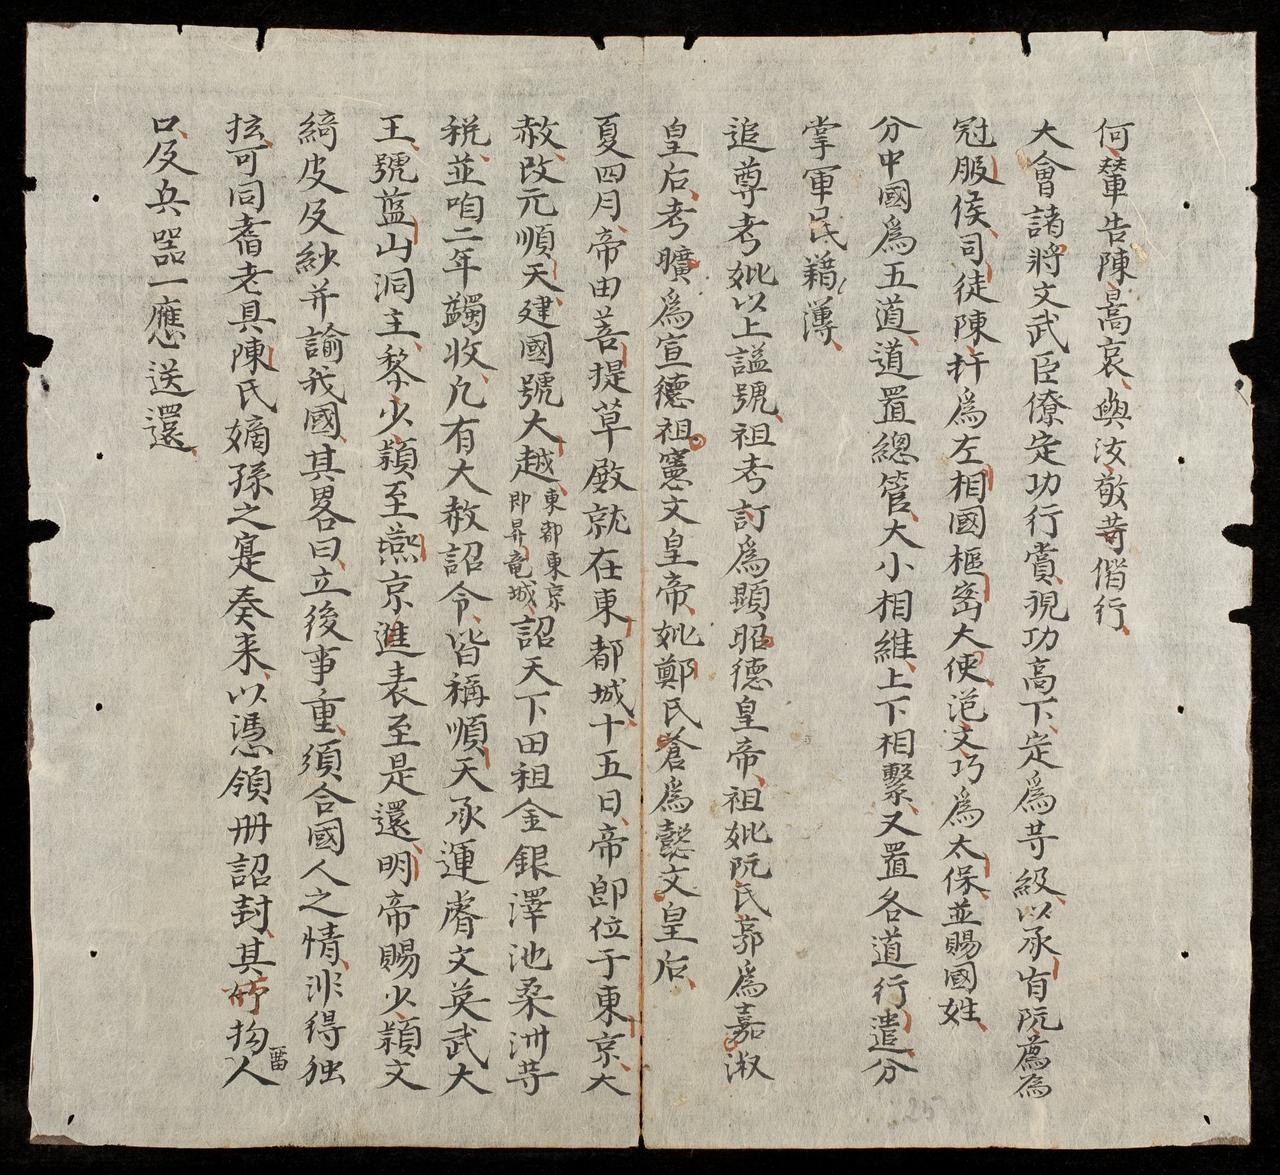 何輦告陳暠哀與汝敬等偕行
大會諸將文武臣僚定功行賞視功高下定爲等級以承旨阮薦爲
冠服侯司徒陳扞爲左相國樞密大使范文巧爲太保並賜國姓
分中國爲五道道置總管大小相維上下相繫又置各道行遣分
掌軍民籍薄
追尊考妣以上諡號祖考訂爲顯昭德皇帝祖妣阮氏郭爲嘉淑
皇后考曠爲宣德祖憲文皇帝妣鄭氏蒼爲懿文皇后
夏四月帝田菩提草殿就在東都城十五日帝卽位于東京大
赦改元順天建國號大越東都東京即昇竜城詔天下田祖金銀澤池桑洲等
稅並咱二年蠲收凢有大赦詔令皆稱順天承運睿文英武大
王號藍山洞主黎少穎至燕京進表至是還明帝賜少穎文
綺皮及紗并諭我國其畧曰立後事重須合國人之情非得独
㧋可同耆老具陳氏嫡孫之寔奏来以憑領册詔封其物人畨
口及兵噐一應送還
25